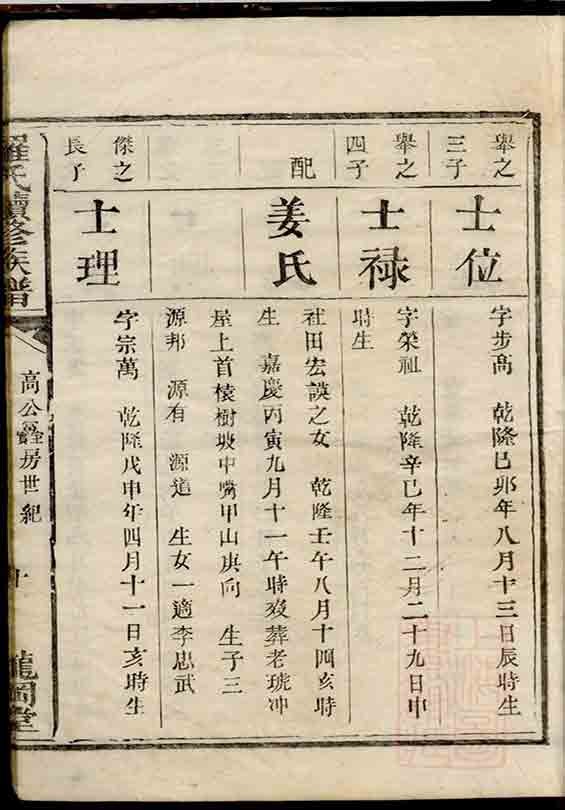 舉之
三子
士位
字步高　乾隆己卯年八月十三日辰時生
舉之
四子
士禄
字榮祖　乾隆辛巳年十二月二十九日申
時生
配
姜氏
社田宏謨之女　乾隆壬午八月十四亥時
生　嘉慶丙寅九月十一午時歿葬老琥冲
屋上首𣝛樹坡中嘴甲山庚向　生子三
源邦　源有　源遠　生女一適李忠武
傑之
長子
士理
字宗萬　乾隆戊申年四月十一日亥時生
羅氏續修族譜
高公
房世紀
十
龍岡堂